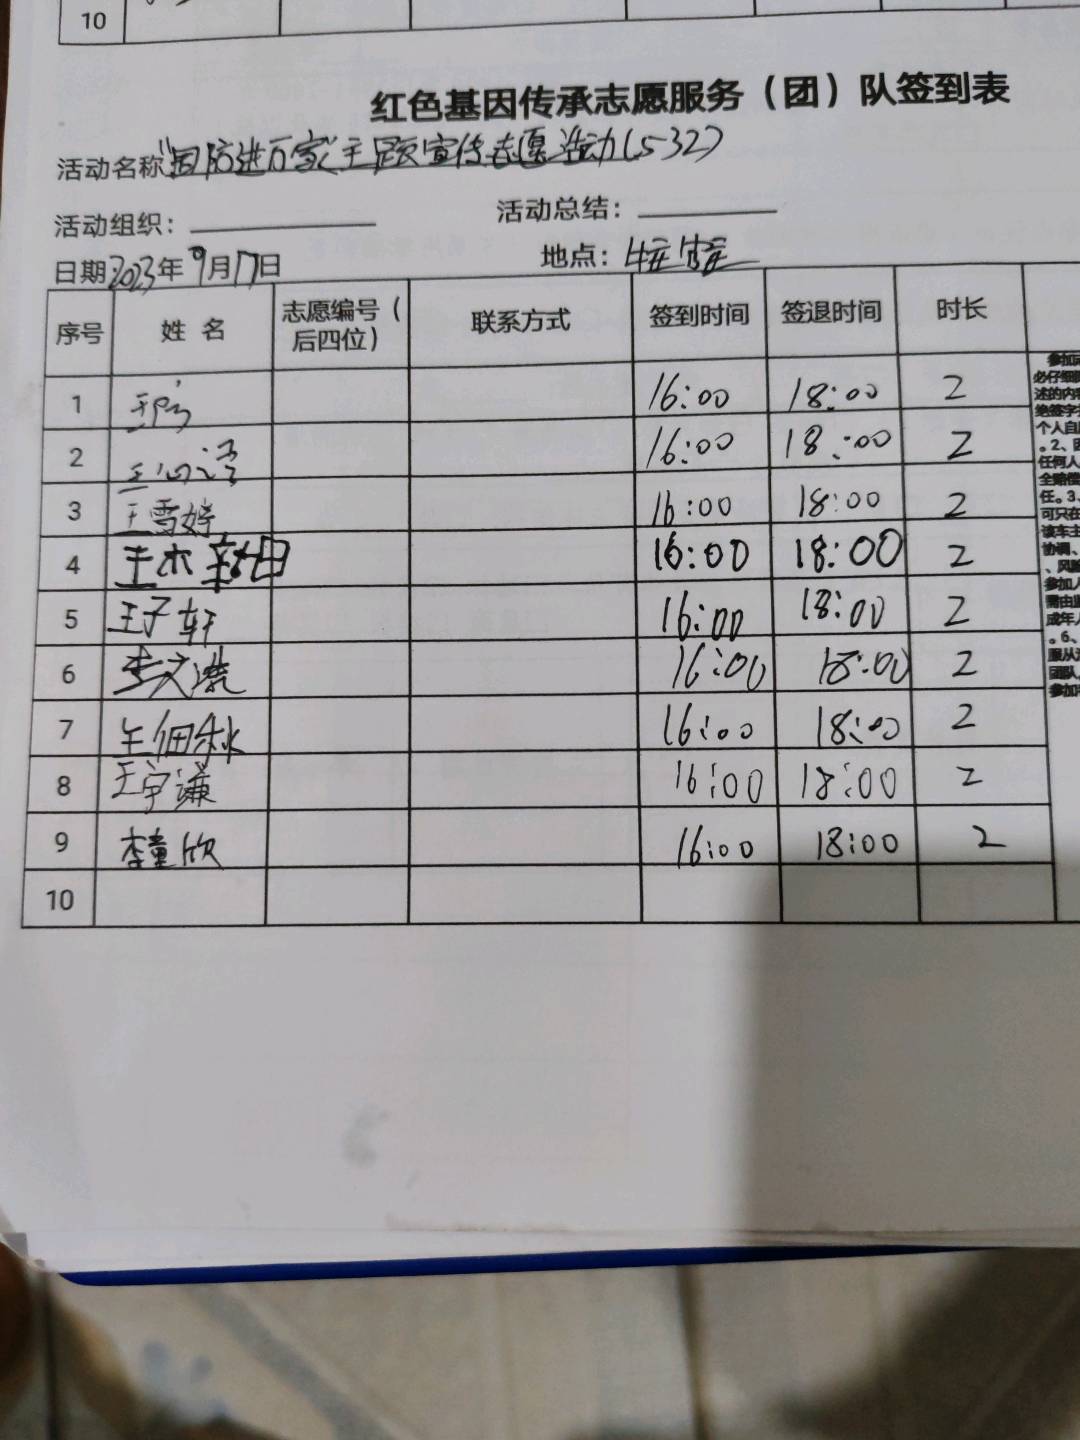 10
红色基因传承志愿服务（团）队签到表
活动名称"国防进万家"主题宣传志愿活动(532)
活动组织： 活动总结：
日期2023年9月17日 地点：
序号 姓名 志愿编号（后四位） 联系方式 签到时间 签退时间 时长
1 16:00 18:00 2
2 16:00 18:00 2
3 王雪婷 16:00 18:00 2
4 16:00 18:00 2
5 王子轩 16:00 18:00 2
6 李文灏 16:00 18:00 2
7 王佃秋 16:00 18:00 2
8 王宇谦 16:00 18:00 2
9 李童欣 16:00 18:00 2
10
参加
必仔细
述的内
绝签字
个人自
。2、因
任何人
全赔偿
任。3、
可只在
该车主
协调、
、风险
参加人
需由监
成年人
。6、
服从
团队
参加